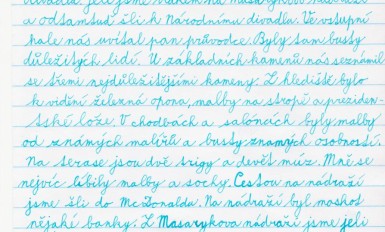 divadla. Jeli jsme vlakem na Masarykovo nádraží
a odtamtud šli k Národnímu divadlu. Ve vstupní
hale nás uvítal pan průvodce. Byly tam busty
důležitých lidí. U základních kamenů nás seznámil
se třemi nejdůležitějšími kameny. Z hlediště bylo
k vidění železná opona, malby na stropě a preziden-
tské lože. V chodbách a salóncích byly malby
od známých malířů a busty znamých osobností.
Na terase jsou dvě trigy a devět múz. Mně se
nejvíc líbily malby a sochy. Cestou na nádraží
jsme šli do Mc Donaldu. Na nádraží byl maskot
nějaké banky. Z Masarykova nádraží jsme jeli